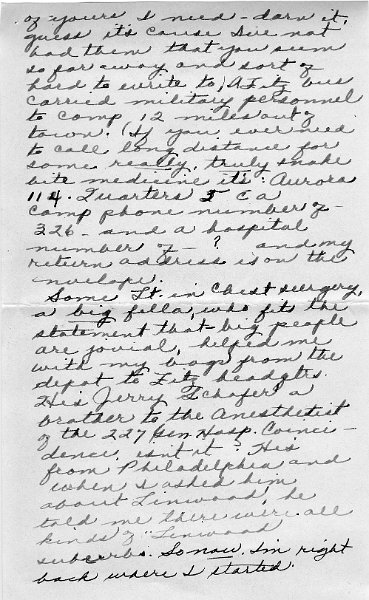 of yours I need - darn it,
guess it's cause I've not
had them that you seem
so far away and sort of
hard to write to; A Fitz bus
carried military personnel
to camp 12 miles out of
town. (If you ever need
to call long distance for
some really, truly snake
bite medicine it's: Aurora
114. Quarters 5 C a
camp phone number of -
326 - and a hospital
number of - ? and my
return address is on the
envelope.
Some Lt. in Chest surgery,
a big fella, who fits the
statement that big people
are jovial, helped me
with my bags from the
depot to Fitz headqtrs.
His Jerry Schafer a
brother to the Anesthetist
of the 227 Gen Hosp. Coinci -
dence, isn't it? His
from Philadelphia and
when I asked him
about Linwood, he
told me there were all
kinds of "Linwood
suburbs. So now I'm right
back where I started.